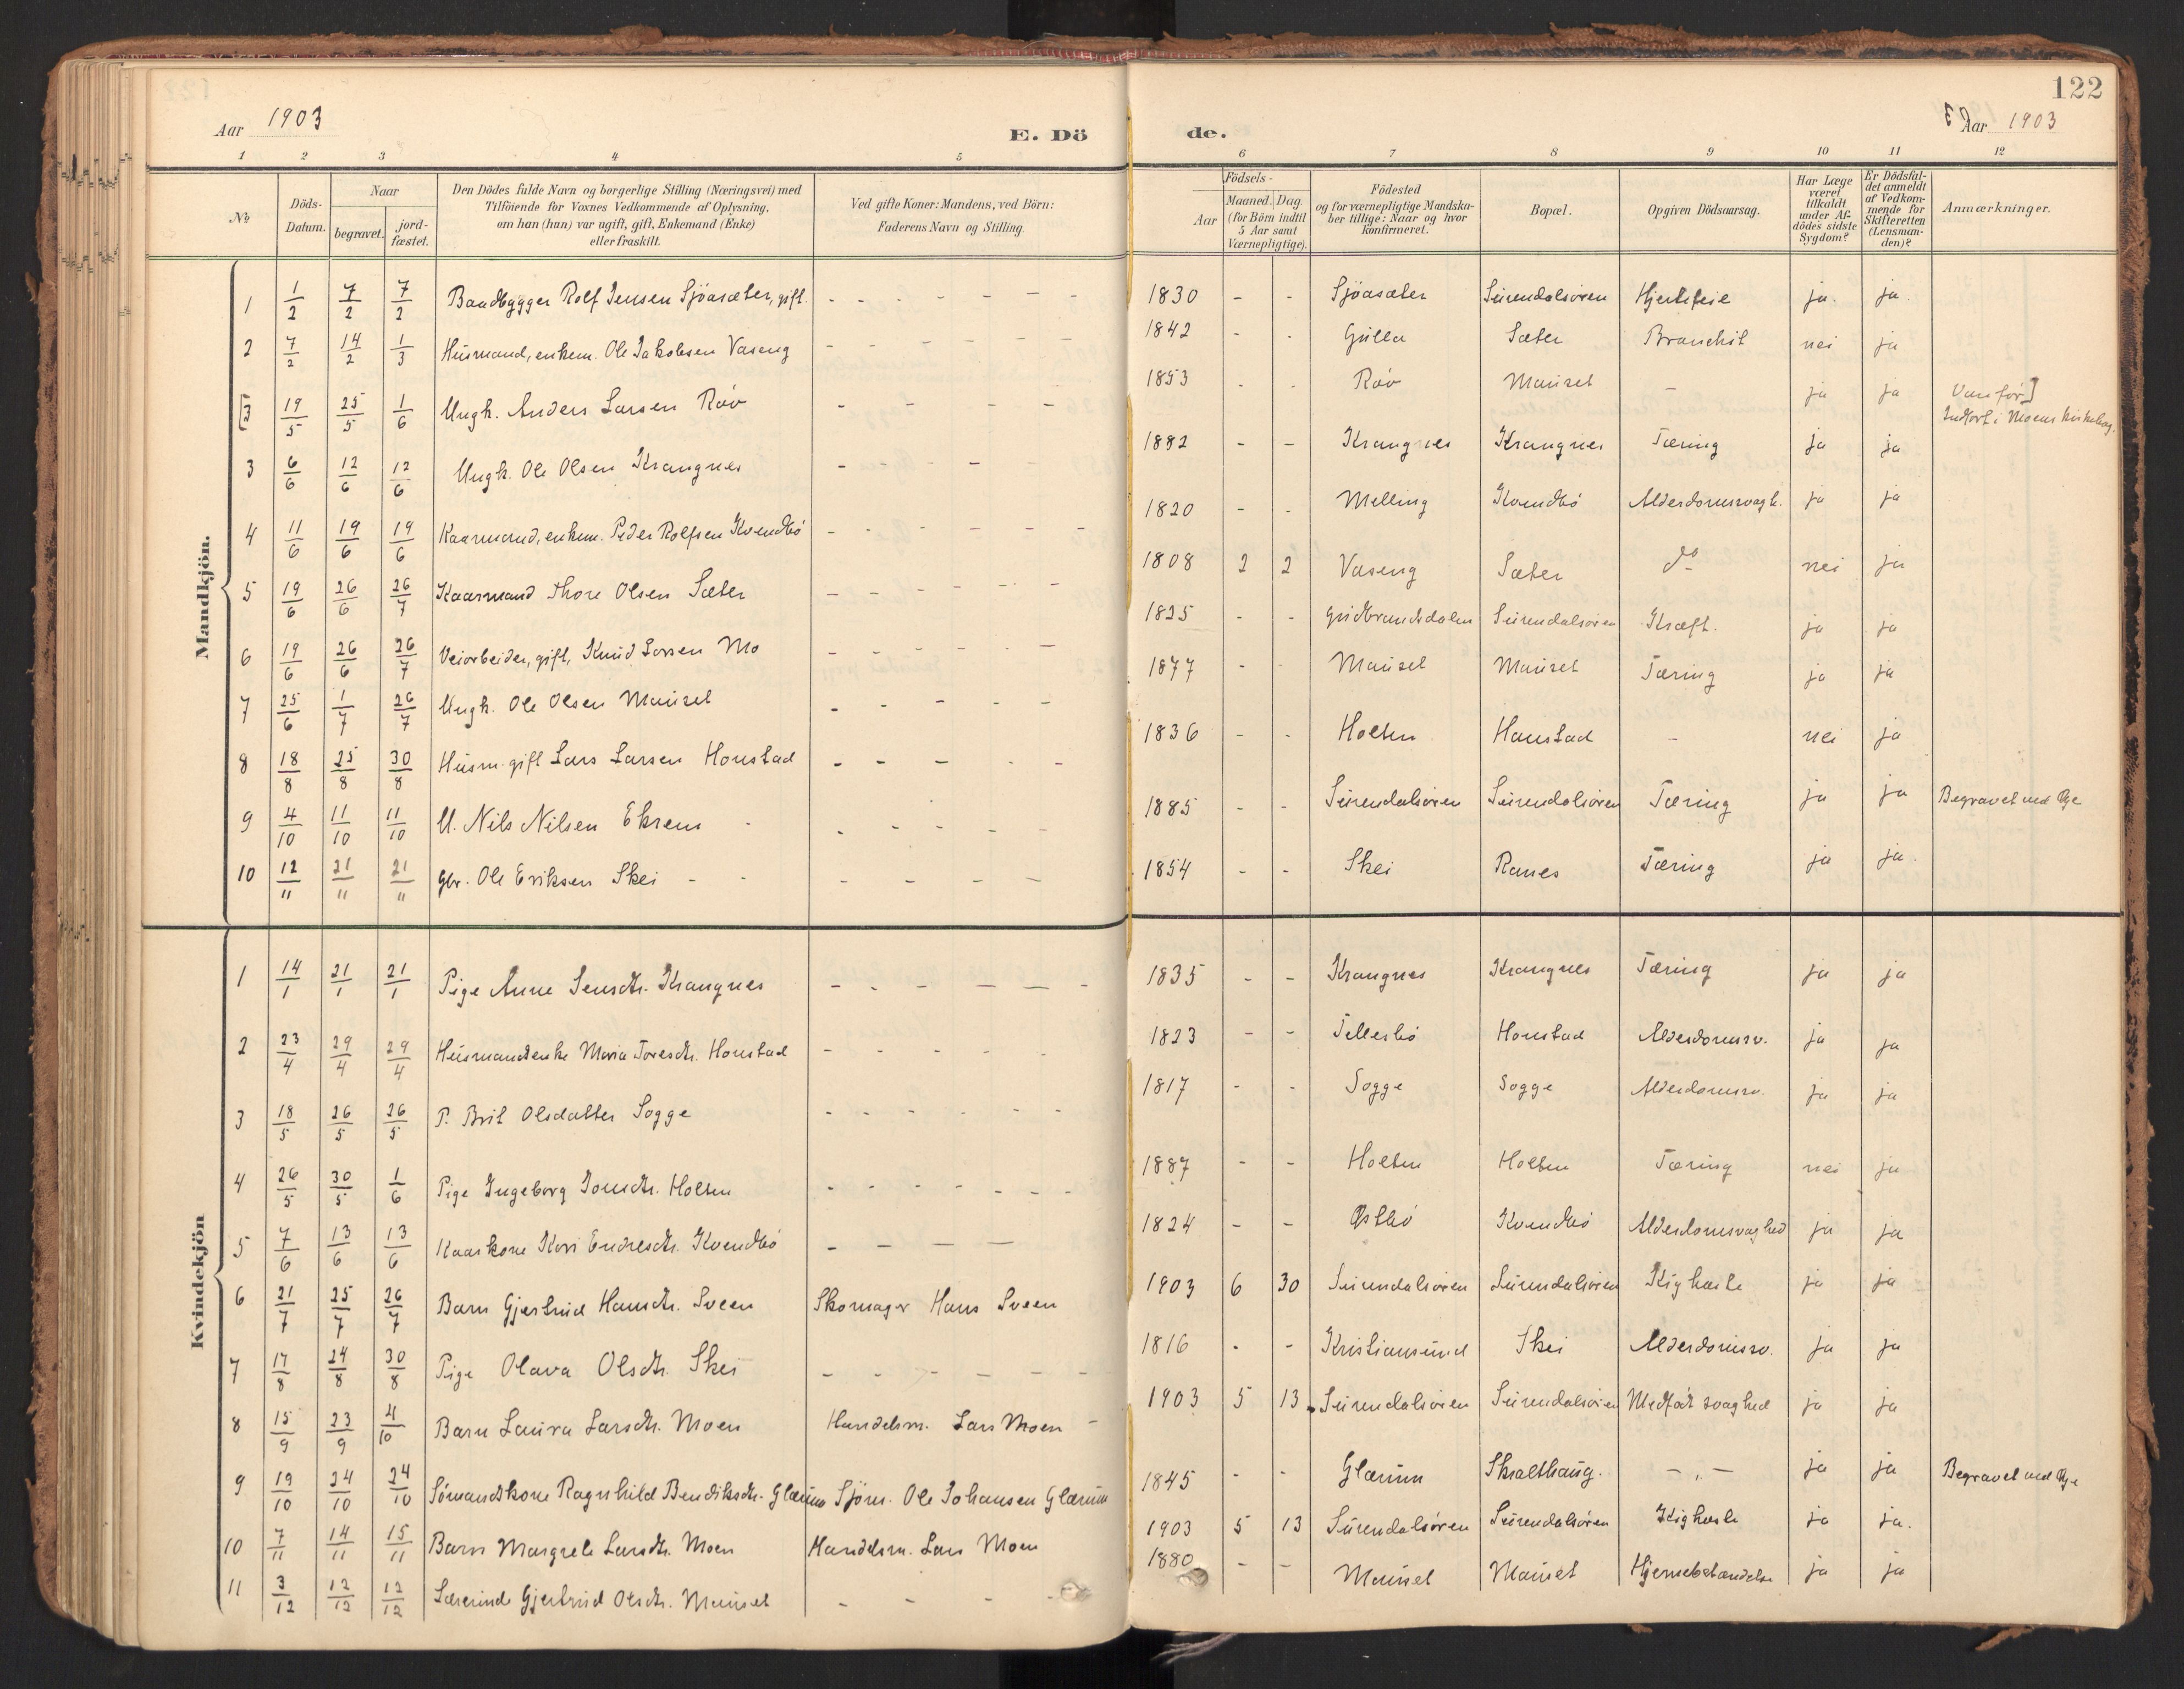 122
Aar 1903
E. Dö
de.
Aar 1903
1 2 3 4 5 6 7 8 9 10 11 12
No
Döds-Datum.
Naar
begravet.
jord-fæstet.
Den Dödes fulde Navn og borgerlige Stilling (Næringsvei) med
Tilföiende for Voxnes Vedkommende af Oplysning,
om han (hun) var ugift, gift, Enkemand (Enke)
eller fraskilt.
Ved gifte Koner: Mandens, ved Börn:
Faderens Navn og Stilling
Födsels-
Aar
Maaned. Dag.
(for Börn indtil
5 Aar samt
Værnepligtige).
Födested
og for værnepligtige Mandska-
ber tillige: Naar og hvor
konfirmeret.
Bopæl.
Opgiven Dödsaarsag.
Har Læge
været
tilkaldt
under Af-
dödes sidste
Sygdom?
Er Dödsfal-
det anmeldt
af Vedkom-
mende for
Skifteretten
(Lensman-
den)?
Anmærkninger.
Mandkjön.
1 1/2 7/2 7/2 Baadbygger Rolf Jensen Sjöasæter, gift. - - - - - - - 1830 - - Sjöasæter Surendalsören Hjertefeil ja. ja.
2 7/2 14/2 1/3 Husmand, enkem. Ole Jakobsen Vaseng - - - - - - - 1842 - - Gulla Sæter Bronchit nei ja
[3 19/5 25/5 1/6 Ungk. Anders Larsen Röv - - - - 1853 - - Röv Mauset - ja ja Vanför]
Indfört i Moens kirkebog.
3 6/6 12/6 12/6 Ungk. Ole Olsen Krangnes - - - - - 1882 - - Krangnes Krangnes Tæring ja ja
4 11/6 19/6 19/6 Kaarmand, enkem. Peder Rolfsen Kvendbö - - - - - - - 1820 - - Melling Kvendbö Alderdomsvagh. ja ja
5 19/6 26/6 26/7 Kaarmand Thore Olsen Sæter - - - - - - 1808 2 2 Vaseng Sæter do nei ja
6 19/6 26/6 26/7 Veiarbeider, gift, Knud Larsen Mo - - - - - - 1825 - - Gudbrandsdalen Surendalsören Kræft. ja ja
7 25/6 1/7 26/7 Ungk. Ole Olsen Mauset - - - - - 1877 - - Mauset Mauset Tæring ja ja
8 18/8 25/8 30/8 Husm. gift Lars Larsen Honstad - - - - - 1836 - - Holten Honstad - nei ja
9 4/10 11/10 11/10 U. Nils Nilsen Ekrem - - - - - - 1885 - - Surendalsören Surendalsören Tæring ja ja Begravet ved Øye
10 12/11 21/11 21/11 Gbr. Ole Eriksen Skei - - - - - - 1854 - - Skei Ranes Tæring ja ja.
Kvindekjön
1 14/1 21/1 21/1 Pige Anne Jensdtr. Krangnes - - - - - - 1835 - - Krangnes Krangnes Tæring ja ja
2 23/4 29/4 29/4 Husmandsenke Maria Toresdtr. Honstad - - - - - 1823 - - Tellesbö Honstad Alderdomsv. ja ja
3 18/5 26/5 26/5 P. Brit Olsdatter Sogge - - - - - - 1817 - - Sogge Sogge Alderdomsv. ja ja
4 26/5 30/5 1/6 Pige Ingeborg Jonsdtr. Holten - - - - - - - 1887 - - Holten Holten Tæring nei ja
5 7/6 13/6 13/6 Kaarkone Kari Endresdtr. Kvendbö - - - - 1824 - - Østbö Kvendbö Alderdomsvaghed ja ja
6 21/7 25/7 26/7 Barn Gjertrud Hansdtr. Sveen Skomager Hans Sveen 1903 6 30 Surendalsören Surendalsören Kighoste ja ja
7 17/8 24/8 30/8 Pige Olava Olsdtr. Skei - - - - - - 1816 - - Kristiansund Skei Alderdomsv. ja ja
8 15/9 23/9 4/10 Barn Laura Larsdtr. Moen Handelsm. Lars Moen - 1903 5 13 Surendalsören Surendalsören Medfödt svaghed ja ja
9 19/10 24/10 24/10 Sömandskone Ragnhild Bendiksdtr. Glærum Sjöm. Ole Johansen Glærum 1845 - - Glærum Skralthaug. - " - ja ja Begravet ved Øye
10 7/11 14/11 15/11 Barn Margrete Larsdtr. Moen Handelsm. Lars Moen 1903 5 13 Surendalsören Surendalsören Kighoste ja ja.
11 3/12 12/12 12/12 Lærerinde Gjertrud Olsdtr. Mauset - - - - 1880 - - Mauset Mauset Hjernebetændelse ja ja